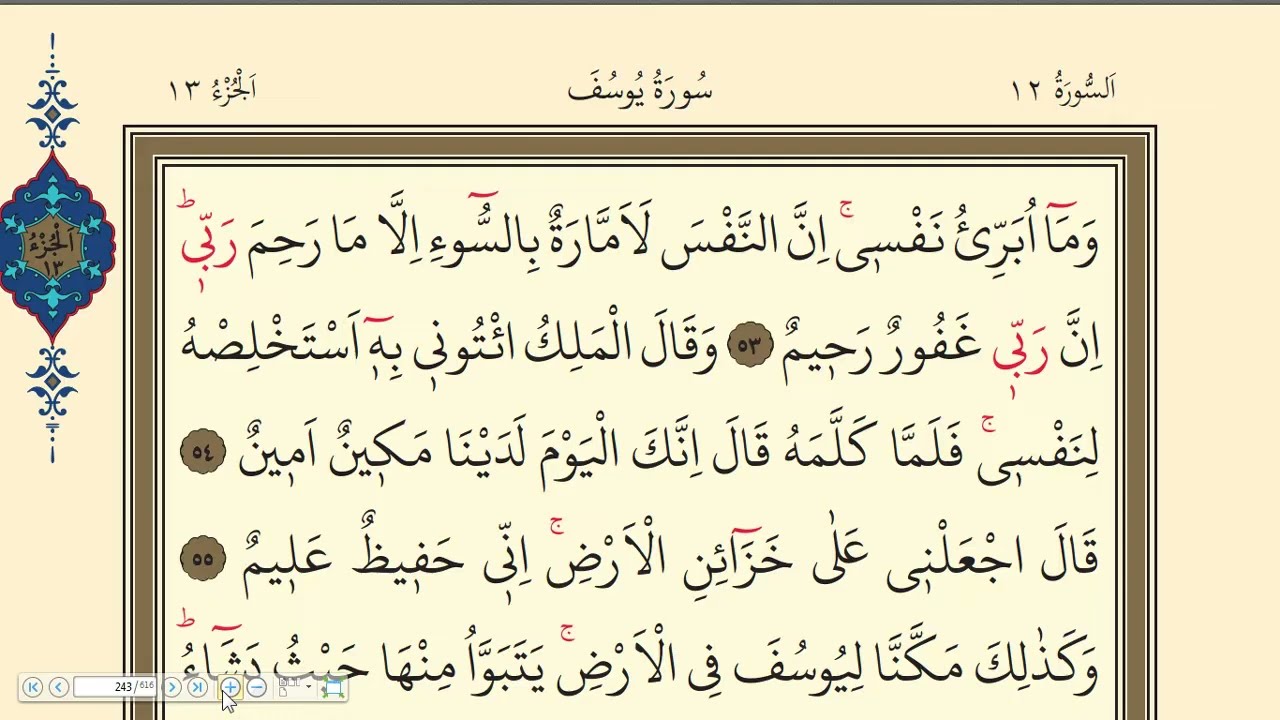 اَلسُّورَةُ ١٢
سُورَةُ يُوسُفَ
اَلْجُزْءُ ١٣
اَلْجُزْءُ
١٣
وَمَٓا اُبَرِّئُ نَفْسٖىۚ اِنَّ النَّفْسَ لَاَمَّارَةٌ بِالسُّٓوءِ اِلَّا مَا رَحِمَ رَبّٖىؕ
اِنَّ رَبّٖى غَفُورٌ رَحٖيمٌ ٥٣ وَقَالَ الْمَلِكُ ائْتُونٖى بِهٖٓ اَسْتَخْلِصْهُ
لِنَفْسٖىۚ فَلَمَّا كَلَّمَهُ قَالَ اِنَّكَ الْيَوْمَ لَدَيْنَا مَكٖينٌ اَمٖينٌ ٥٤
قَالَ اجْعَلْنٖى عَلٰى خَزَٓائِنِ الْاَرْضِۚ اِنّٖى حَفٖيظٌ عَلٖيمٌ ٥٥
وَكَذٰلِكَ مَكَّنَّا لِيُوسُفَ فِى الْاَرْضِۚ يَتَبَوَّاُ مِنْهَا حَيْثُ يَشَٓاءُؕ
243 / 616